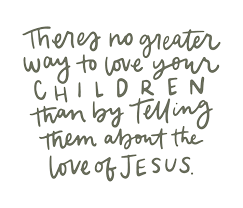 Theres no greater
way to love your
CHILDREN
than by telling
them about the
love of JESUS.